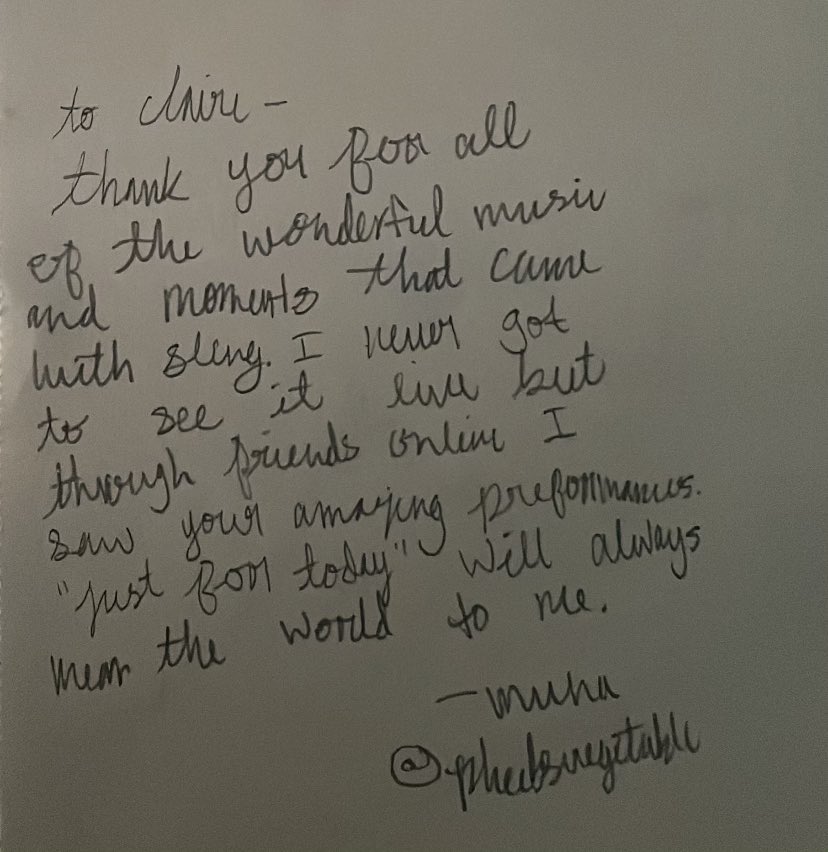 to claire -
thank you for all
of the wonderful music
and moments that came
with sling. I never got
to see it live but
through friends online I
saw your amazing preformances.
"just for today" will always
mean the world to me.
- muna
@phoebsvegetable